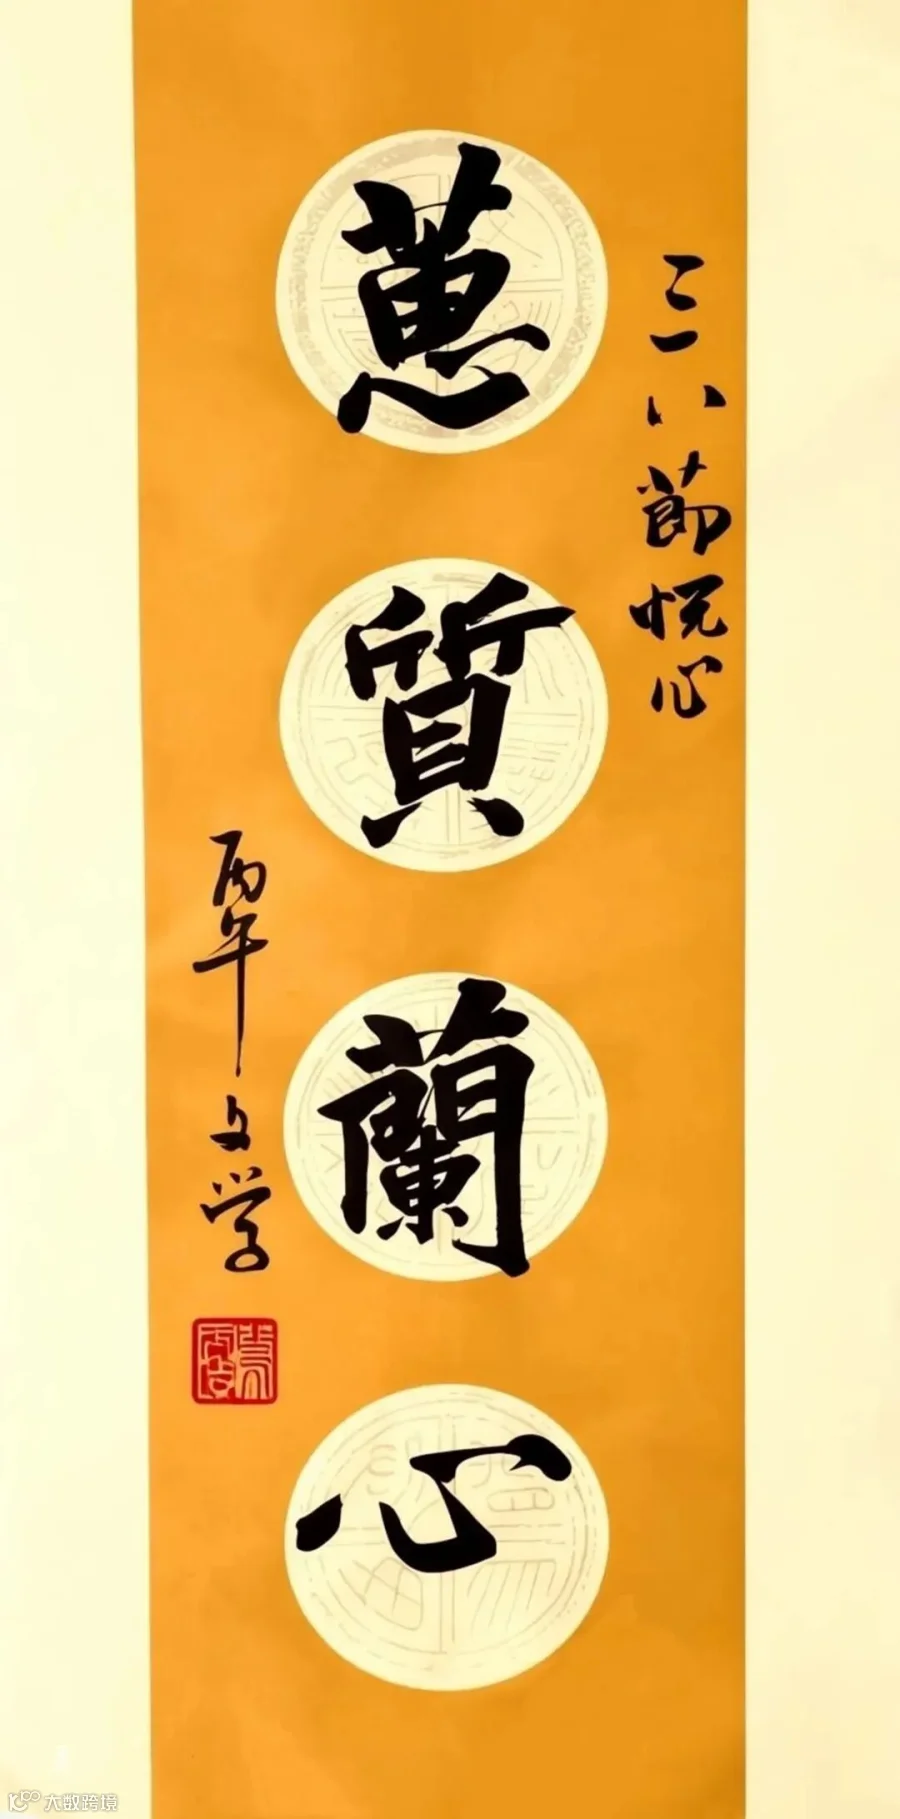 三八節悦心
蕙質蘭心
丙午文学
大数跨境